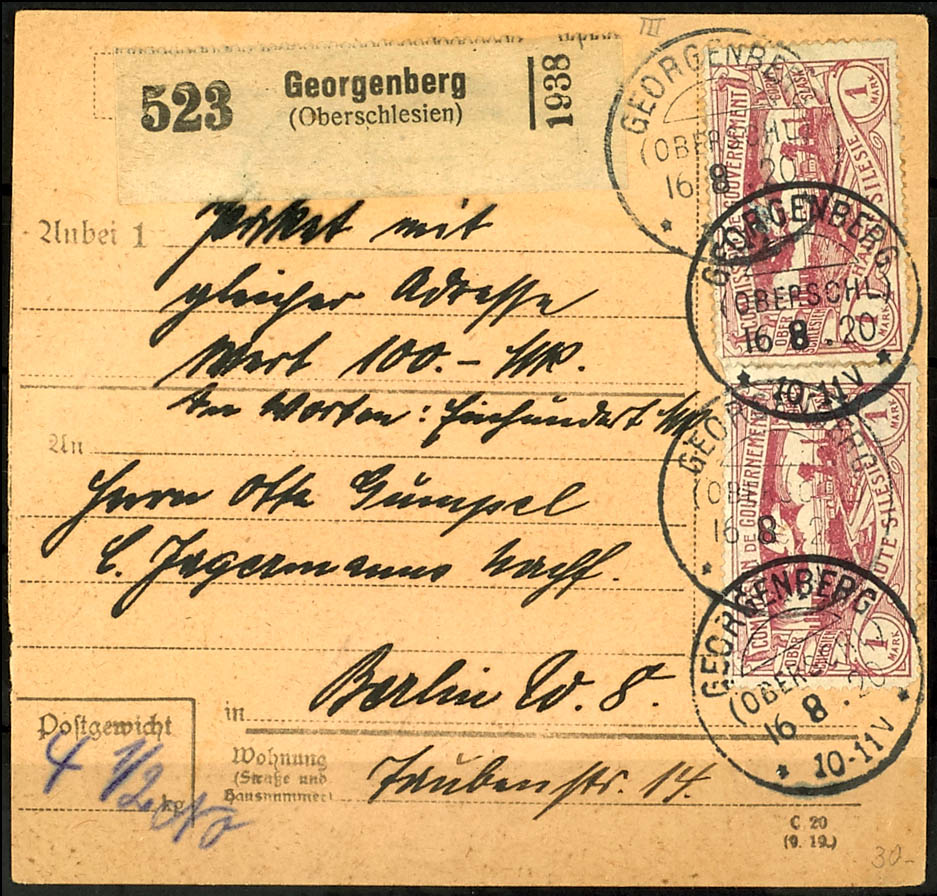 III
523 Georgenberg 1938
(Oberschlesien)
GEORGENBERG
(OBERSCHL.)
16 8.20
Anbei 1 Paket mit
gleicher Adresse
Wert 100.- Mk.
In Worten: Einhundert Mk
An
Herrn Otto Gumpel
C. Jagermanns Nachf.
in Berlin W. 8.
Wohnung
(Straße und
Hausnummer) Taubenstr. 14.
Postgewicht
4 1/2 kg
C 20
(9. 19.)
30-
COMMISSION DE GOUVERNEMENT
HAUTE SILESIE
1 MARK
OBER SCHLESIEN
GÓRNY ŚLĄSK
1 MARK
GEORGENBERG
(OBERSCHL.)
16 8.20
10-11V
GEORGENBERG
(OBERSCHL.)
16 8.20
COMMISSION DE GOUVERNEMENT
HAUTE SILESIE
1 MARK
OBER SCHLESIEN
1 MARK
GEORGENBERG
(OBERSCHL.)
16 8.20
10-11V